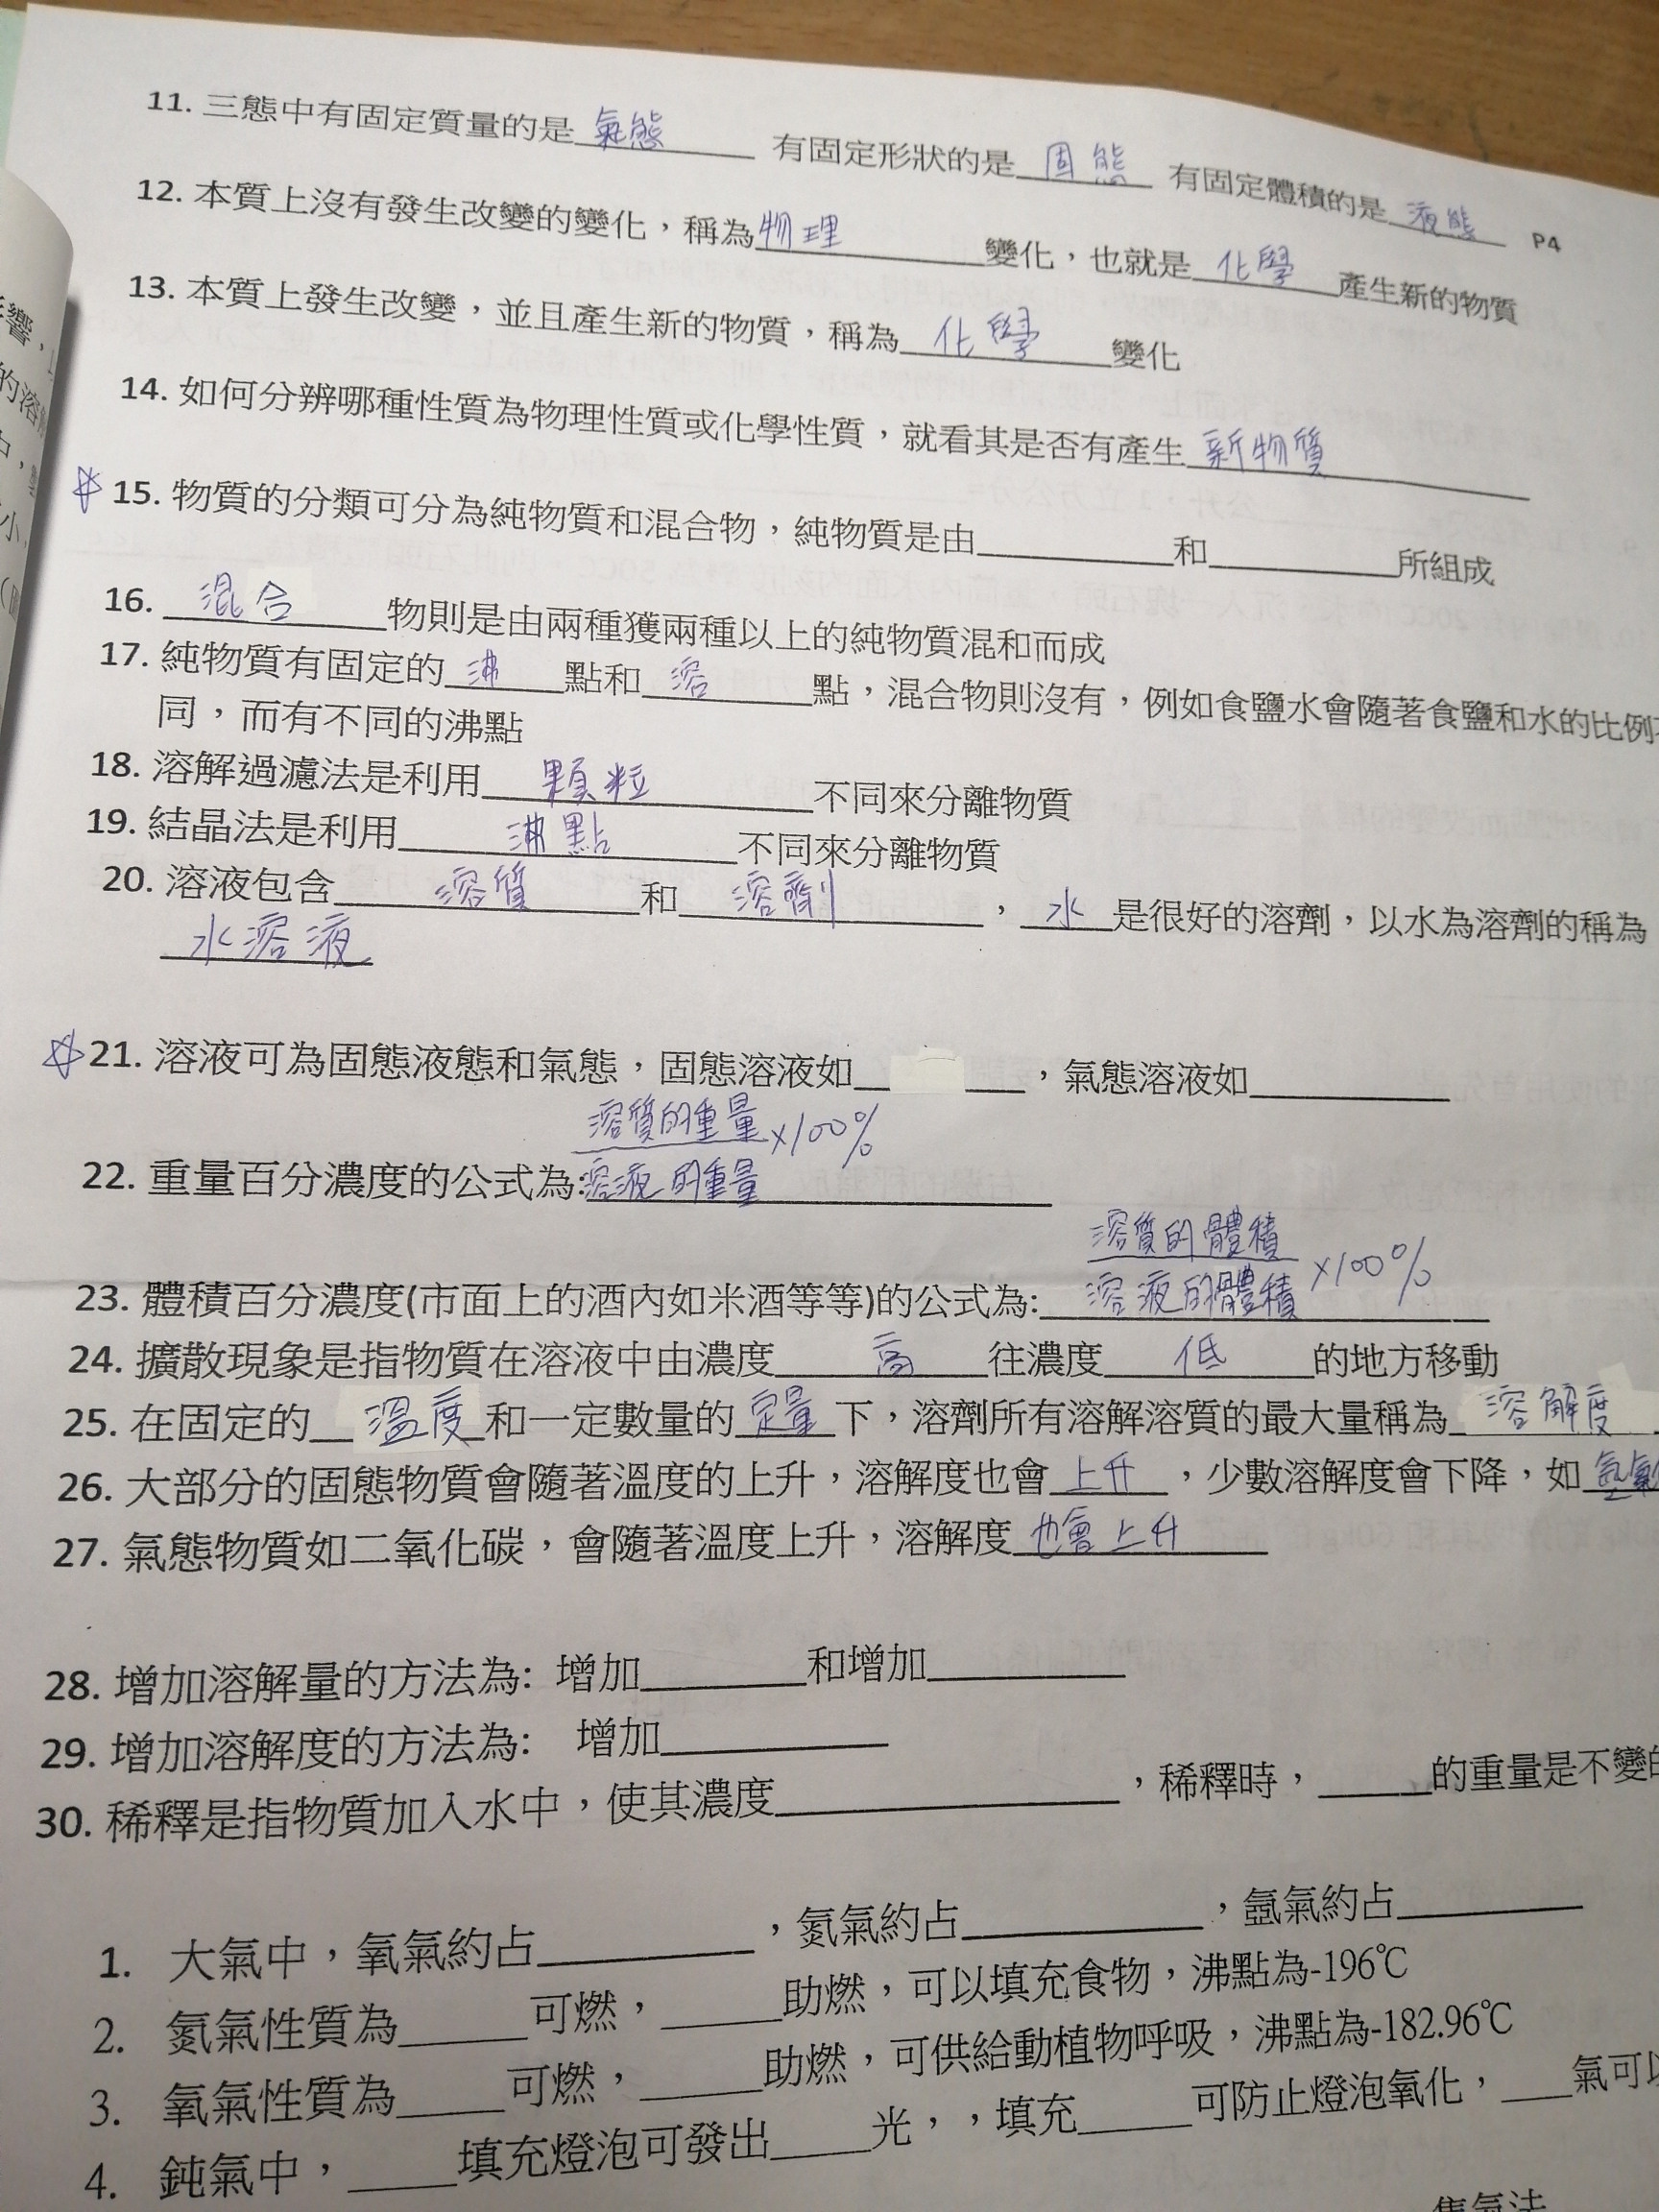 11. 三態中有固定質量的是 氣態 有固定形狀的是 固態 有固定體積的是 液態 P4
12. 本質上沒有發生改變的變化，稱為物理 變化，也就是 化學 產生新的物質
13. 本質上發生改變，並且產生新的物質，稱為 化學 變化
14. 如何分辨哪種性質為物理性質或化學性質，就看其是否有產生 新物質
☆ 15. 物質的分類可分為純物質和混合物，純物質是由__________和__________所組成
16. 混合 物則是由兩種獲兩種以上的純物質混和而成
17. 純物質有固定的 沸 點和 溶 點，混合物則沒有，例如食鹽水會隨著食鹽和水的比例
同，而有不同的沸點
18. 溶解過濾法是利用 顆粒 不同來分離物質
19. 結晶法是利用 沸點 不同來分離物質
20. 溶液包含 溶質 和 溶劑 ， 水 是很好的溶劑，以水為溶劑的稱為
水溶液
☆ 21. 溶液可為固態液態和氣態，固態溶液如________，氣態溶液如__________
溶質的重量 ×100%
22. 重量百分濃度的公式為:溶液的重量
溶質的體積 ×100%
23. 體積百分濃度(市面上的酒內如米酒等等)的公式為: 溶液的體積
24. 擴散現象是指物質在溶液中由濃度 高 往濃度 低 的地方移動
25. 在固定的 溫度 和一定數量的 定量 下，溶劑所有溶解溶質的最大量稱為 溶解度
26. 大部分的固態物質會隨著溫度的上升，溶解度也會 上升 ，少數溶解度會下降，如
27. 氣態物質如二氧化碳，會隨著溫度上升，溶解度 也會上升
28. 增加溶解量的方法為: 增加________和增加__________
29. 增加溶解度的方法為: 增加__________
30. 稀釋是指物質加入水中，使其濃度________________，稀釋時，_____的重量是不變的
1. 大氣中，氧氣約占__________，氮氣約占__________，氬氣約占__________
2. 氮氣性質為_____可燃，_____助燃，可以填充食物，沸點為-196℃
3. 氧氣性質為_____可燃，_____助燃，可供給動植物呼吸，沸點為-182.96℃
4. 鈍氣中，_____填充燈泡可發出_____光，，填充_____可防止燈泡氧化，___氣可以
集氣法